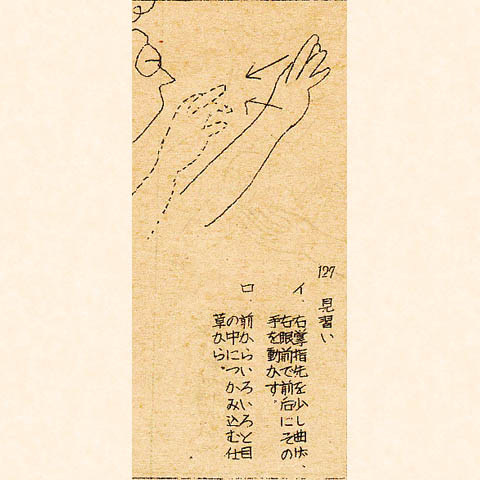 127
見習い
イ．右掌指先を少し曲げ、
右眼前で前后にその
手を動かす。
ロ．前からいろいろと目
の中につかみ込む仕
草から。